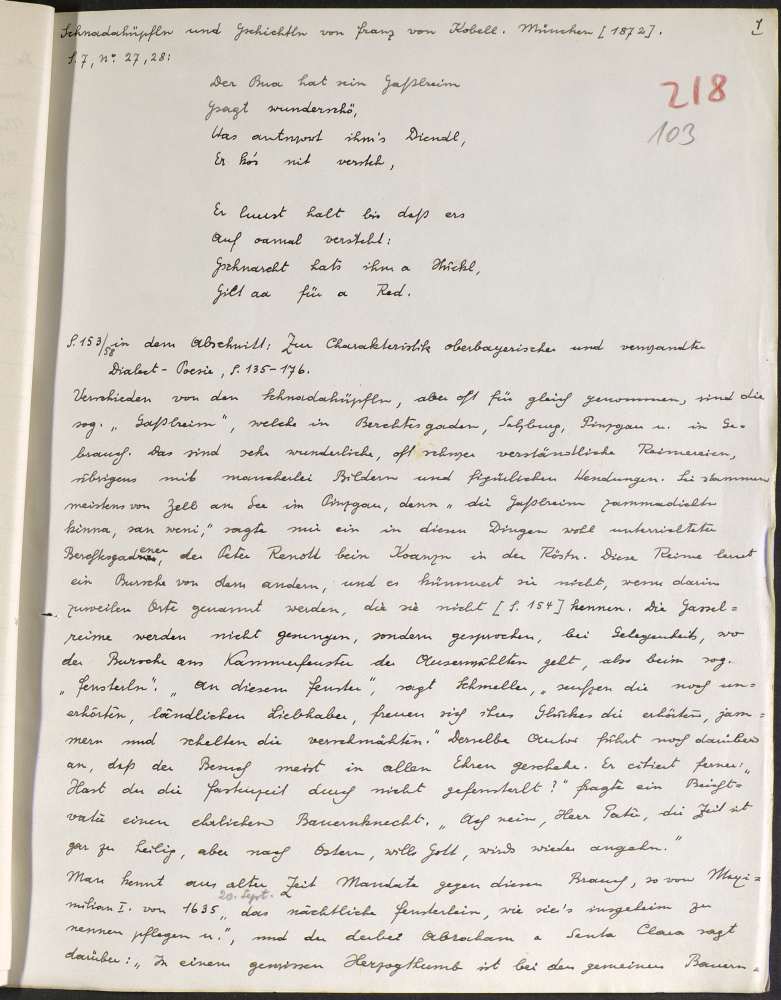 1
Schnadahüpfln und Gschichtln von Franz von Kobell. München [1872].
S. 7, No. 27, 28:
218
103
Der Bua hat sein Gaßlreim
Gsagt wunderschö,
Was antwort ihm's Diendl,
Er kō's nit versteh,
Er lust halt bis daß ers
Auf oamal versteht:
Gschnarcht hats ihm a Stückl,
Gilt aa für a Red.
S. 153/58 in dem Abschnitt: Zur Charakteristik oberbayerischer und verwandter
Dialect-Poesie, S. 135-176.
Verschieden von den Schnadahüpfln, aber oft für gleich genommen, sind die
sog. „Gaßlreim", welche in Berchtesgaden, Salzburg, Pinzgau u. in Ge-
brauch. Das sind sehr wunderliche, oft schwer verständliche Reimereien,
übrigens mit mancherlei Bildern und figürlichen Wendungen. Sie stammen
meistens von Zell am See im Pinzgau, denn „die Gaßlreim zammadichtn
kinna, san weni," sagte mir ein in diesen Dingen wohl unterrichteter
Berchtsgadnener, der Peter Renoth bein Koanzn in der Röstn. Diese Reime lernt
ein Bursche von dem andern, und es kümmert sie nicht, wenn darin
zuweilen Orte genannt werden, die sie nicht [S. 154] kennen. Die Gassel-
reime werden nicht gesungen, sondern gesprochen, bei Gelegenheit, wo
der Bursche ans Kammerfenster der Auserwählten geht, also beim sog.
„Fensterln". „An diesem Fenster", sagt Schmeller, „seufzen die noch un-
erhörten, ländlichen Liebhaber, freuen sich ihres Glückes die erhörten, jam-
mern und schelten die verschmähten." Derselbe Autor führt noch darüber
an, daß der Besuch meist in allen Ehren geschehe. Er citiert ferner: „
Hast du die Fastenzeit durch nicht gefensterlt?" fragte ein Beicht-
vater einen ehrlichen Bauernknecht. „Ach nein, Herr Pater, die Zeit ist
gar zu heilig, aber nach Ostern, wills Gott, wirds wieder angehn."
Man kennt aus alter Zeit Mandate gegen diesen Brauch, so von Maxi-
20. Sept.
milian I. von 1635 „das nächtliche Fensterlein, wie sie's insgeheim zu
nennen pflegen u.", und der derbei Abraham a Santa Clara sagt
darüber: „In einem gewissen Herzogthumb ist bei den gemeinen Bauern-